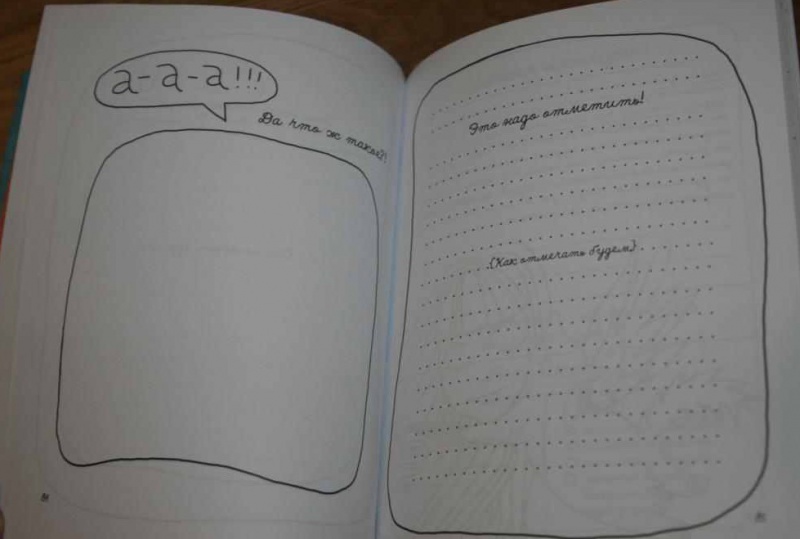 а-а-а!!!
Да что ж такое?!
Это надо отметить!
(Как отмечать будем)